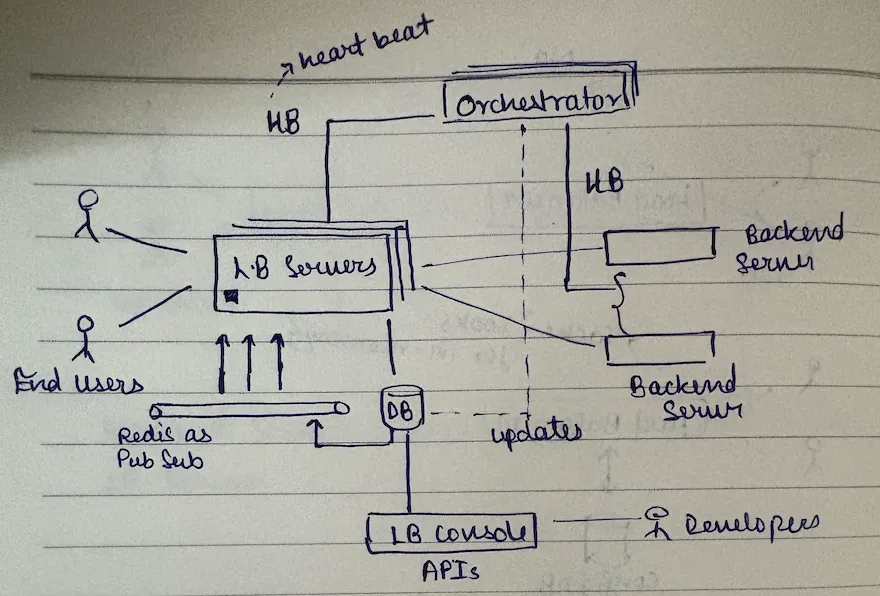 heart beat
HB
Orchestrator
HB
L.B Servers
Backend
Server
Backend
Server
End Users
Redis as
Pub Sub
DB
updates
LB Console
APIs
Developers